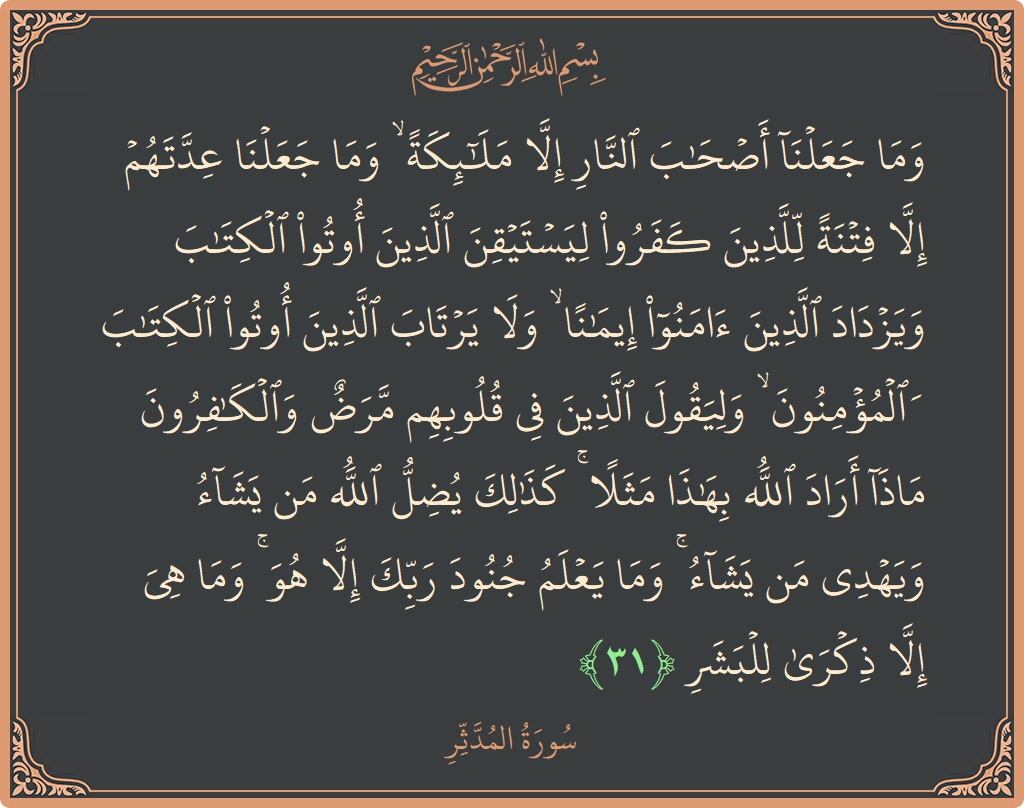 بِسْمِ اللَّهِ الرَّحْمَٰنِ الرَّحِيمِ
وَمَا جَعَلْنَآ أَصْحَٰبَ ٱلنَّارِ إِلَّا مَلَٰٓئِكَةً ۙ وَمَا جَعَلْنَا عِدَّتَهُمْ
إِلَّا فِتْنَةً لِّلَّذِينَ كَفَرُوا۟ لِيَسْتَيْقِنَ ٱلَّذِينَ أُوتُوا۟ ٱلْكِتَٰبَ
وَيَزْدَادَ ٱلَّذِينَ ءَامَنُوٓا۟ إِيمَٰنًا ۙ وَلَا يَرْتَابَ ٱلَّذِينَ أُوتُوا۟ ٱلْكِتَٰبَ
َٱلْمُؤْمِنُونَ ۙ وَلِيَقُولَ ٱلَّذِينَ فِى قُلُوبِهِم مَّرَضٌ وَٱلْكَٰفِرُونَ
مَاذَآ أَرَادَ ٱللَّهُ بِهَٰذَا مَثَلًا ۚ كَذَٰلِكَ يُضِلُّ ٱللَّهُ مَن يَشَآءُ
وَيَهْدِى مَن يَشَآءُ ۚ وَمَا يَعْلَمُ جُنُودَ رَبِّكَ إِلَّا هُوَ ۚ وَمَا هِىَ
إِلَّا ذِكْرَىٰ لِلْبَشَرِ ﴿٣١﴾
سُورَةُ المُدَّثِّرِ